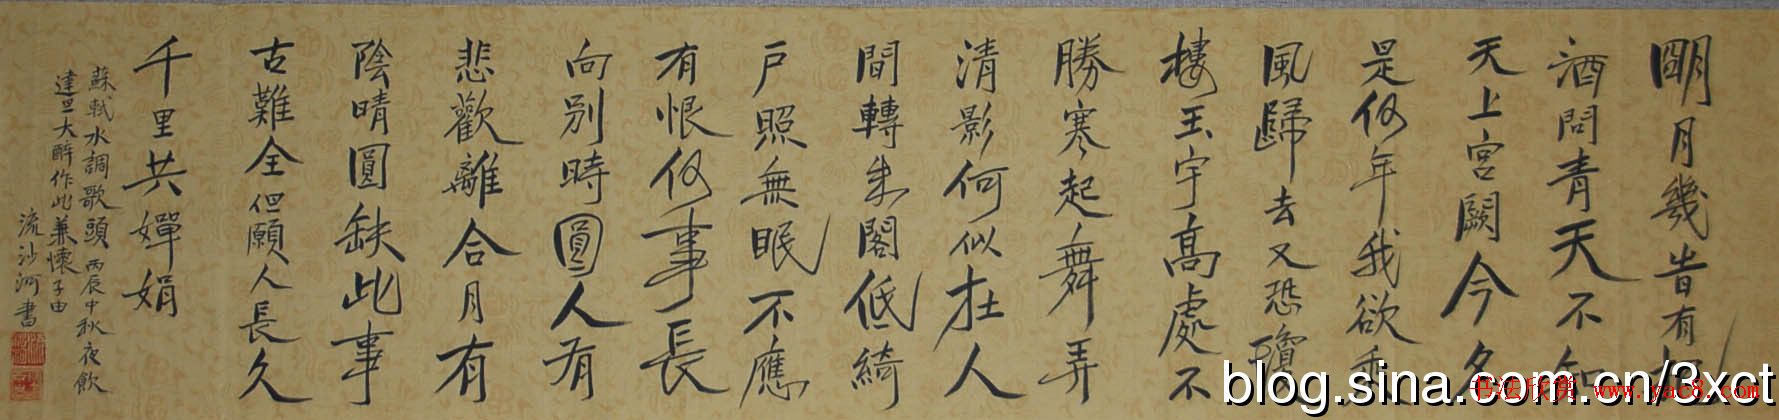 明月幾旹有把
酒問青天不知
天上宮闕今夕
是何年我欲乘
風歸去又恐瓊
樓玉宇高處不
勝寒起舞弄
清影何似在人
間轉朱閣低綺
戶照無眠不應
有恨何事長
向別時圓人有
悲歡離合月有
陰晴圓缺此事
古難全但願人長久
千里共嬋娟
蘇軾水調歌頭 丙辰中秋夜飲
達旦大醉作此兼懷子由
流沙河書
blog.sina.com.cn/3xct
书法欣赏 www.yac8.com